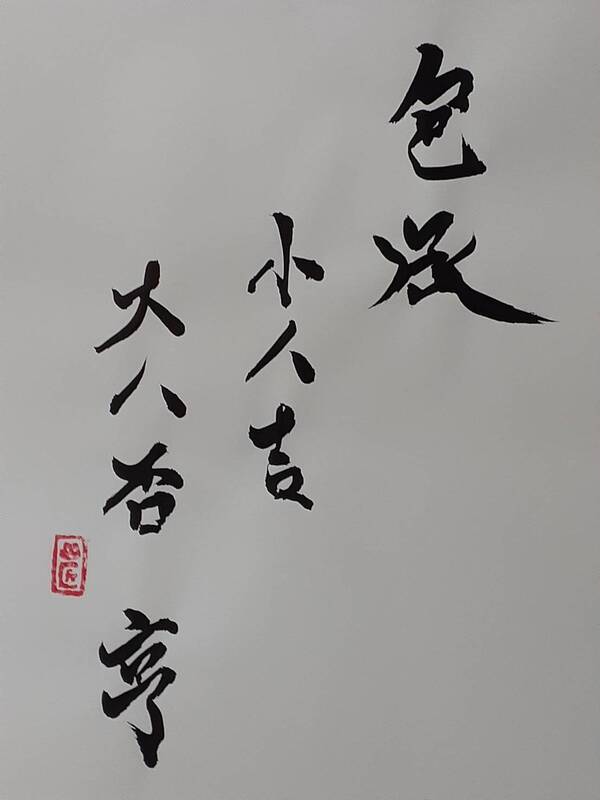 包承
小人吉
大人否 亨